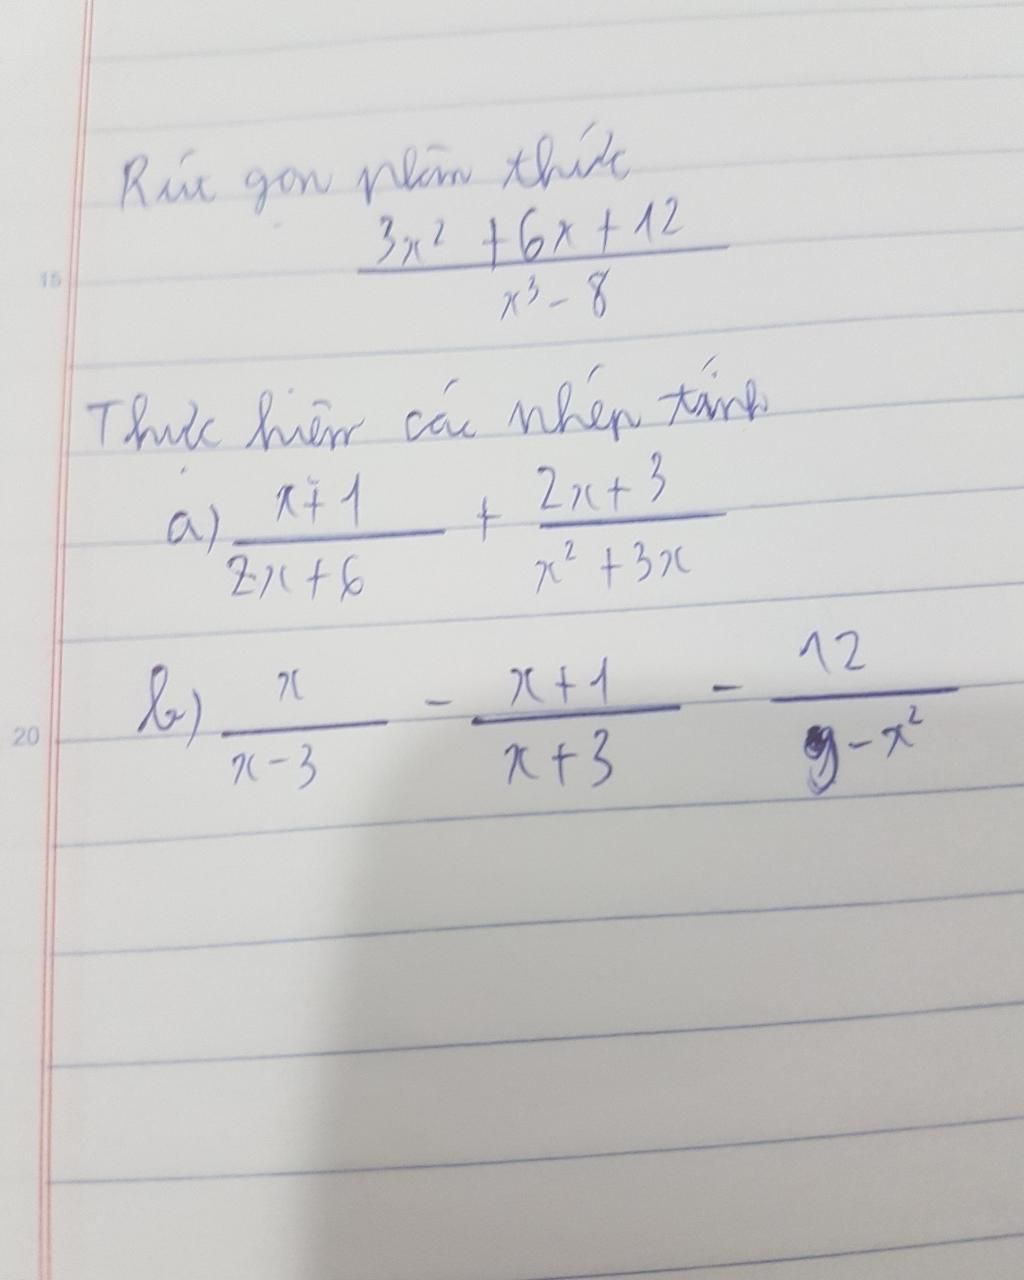 Rút gọn phân thức
3x² + 6x + 12
x³ - 8
15
Thực hiện các phép tính
a) x+1 / 2x+6 + 2x+3 / x²+3x
b) x / x-3 - x+1 / x+3 - 12 / 9-x²
20